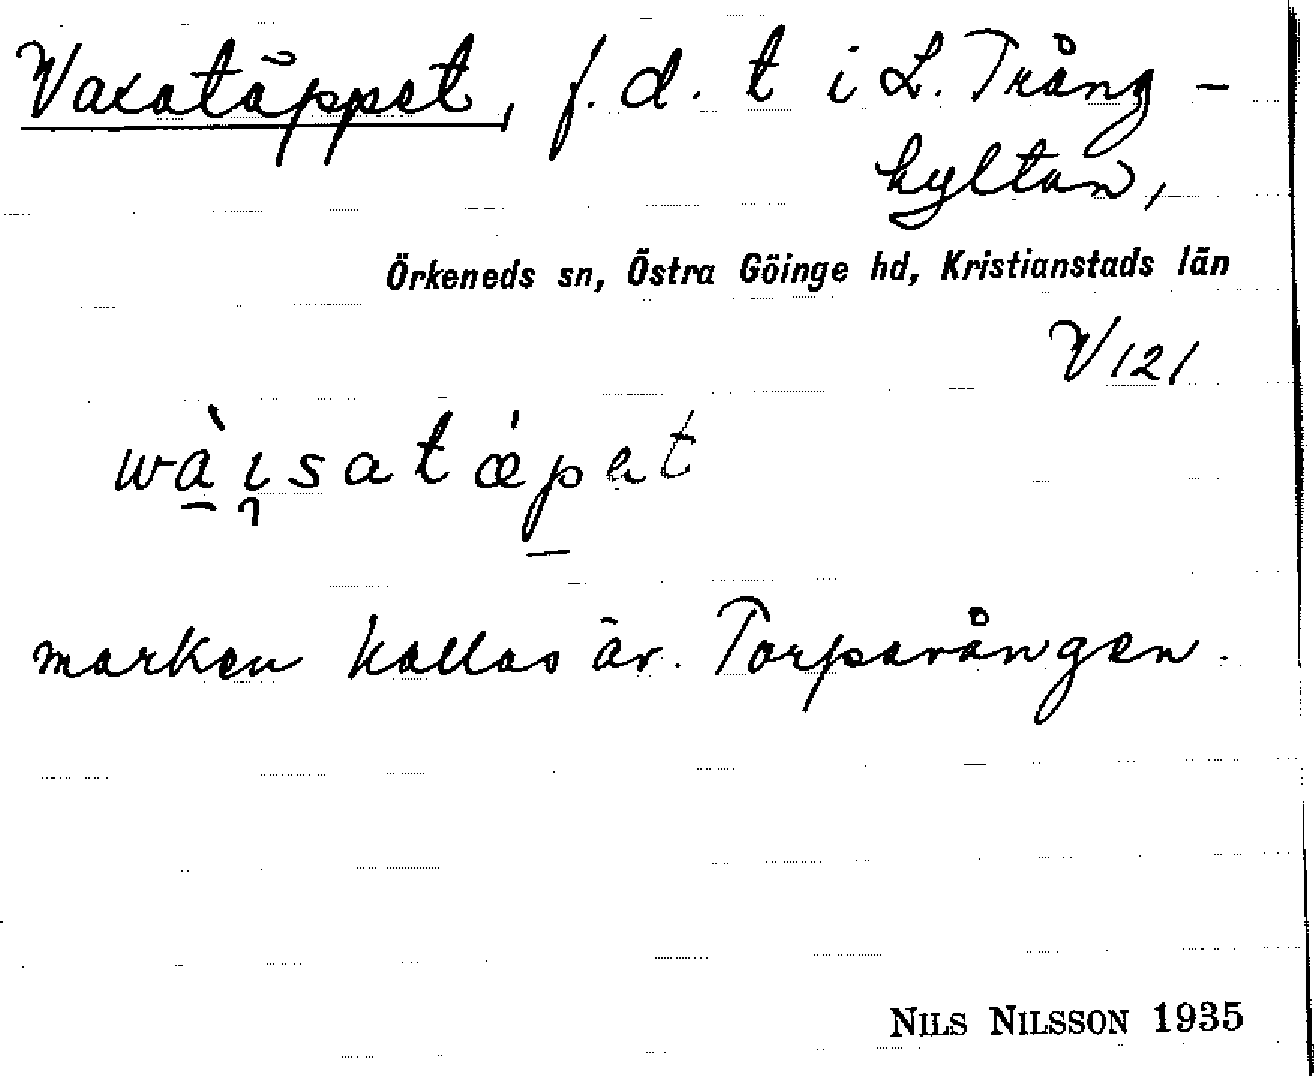 Vaxatäppet, f.d. t i L. Trång-
hyltan,
Örkeneds sn, Östra Göinge hd, Kristianstads län
V121
wàı̯satǽpet
marken kallas äv. Torparången.
NILS NILSSON 1935